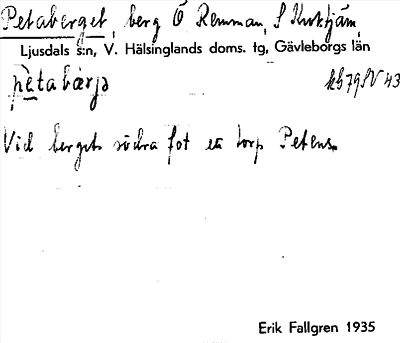 Petaberget, berg Ö Renman, S Kuktjärn,
Ljusdals s:n, V. Hälsinglands doms. tg, Gävleborgs län
pètabærjə kb 79 SV 43
Vid bergets södra fot en torp Petens.
Erik Fallgren 1935